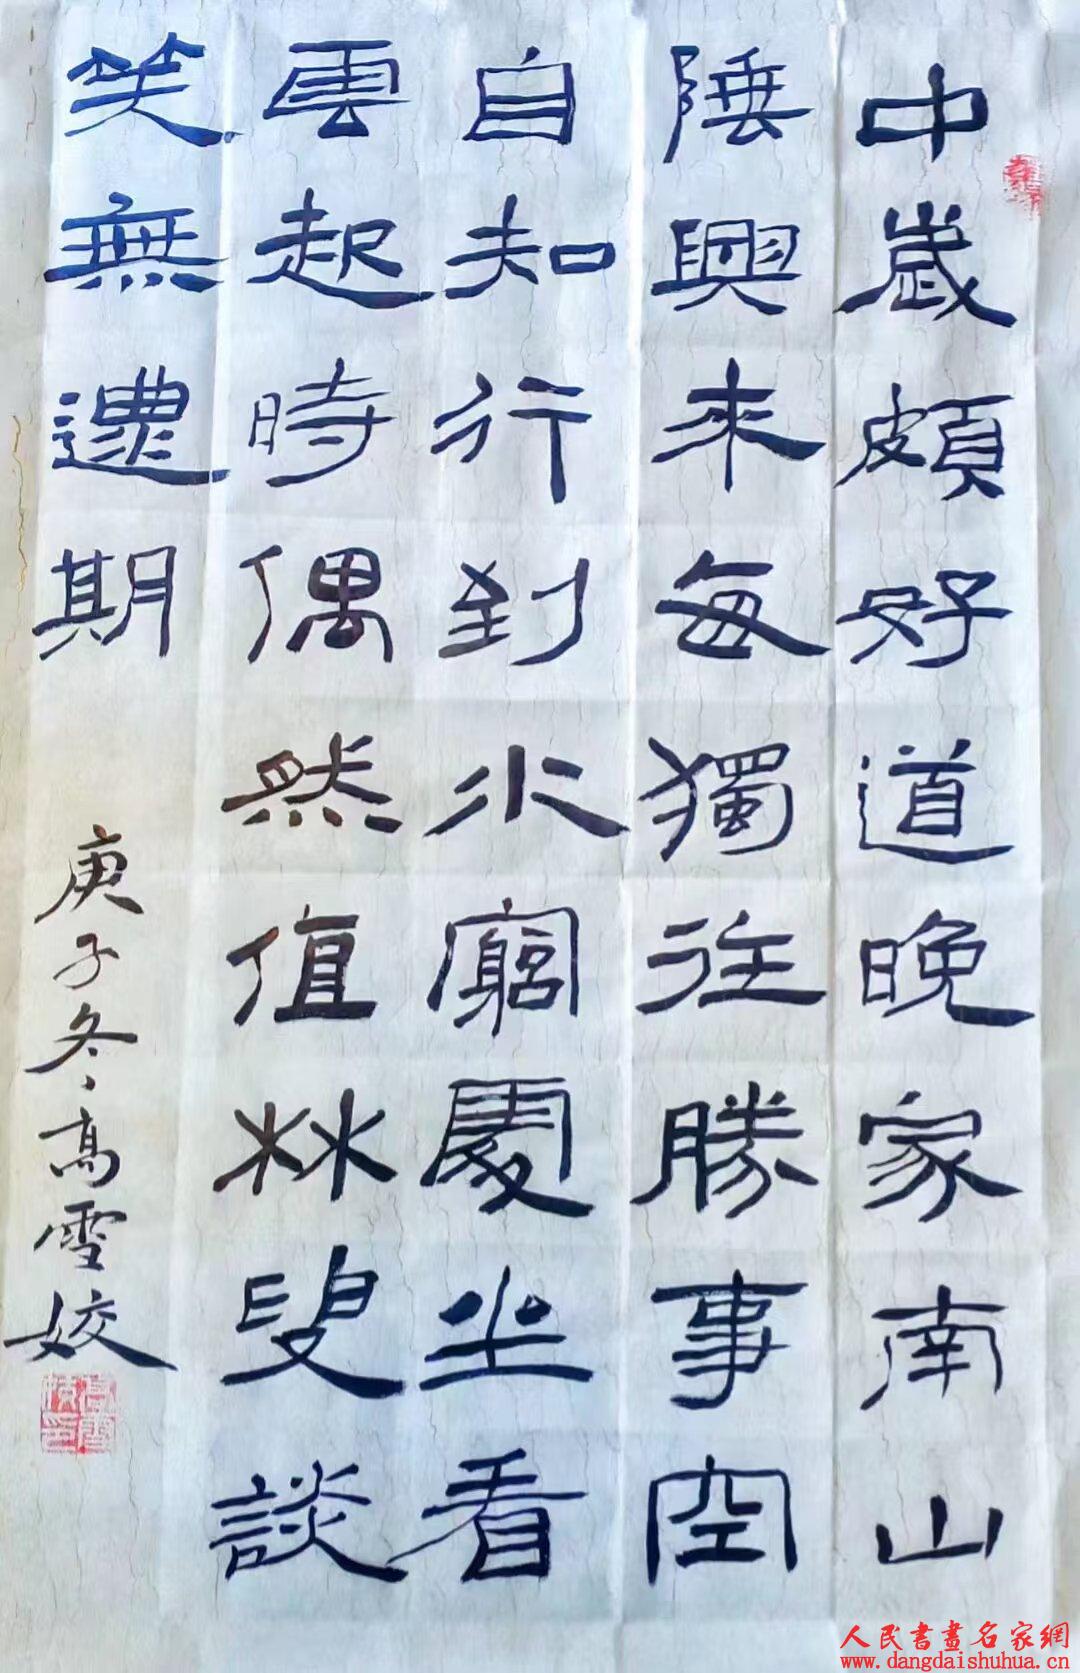 中歲頗好道晚家南山
陲興來每獨往勝事空
自知行到水窮處坐看
雲起時偶然值林叟談
笑無還期
庚子冬高雪姣
人民書畫名家網
www.dangdaishuhua.cn